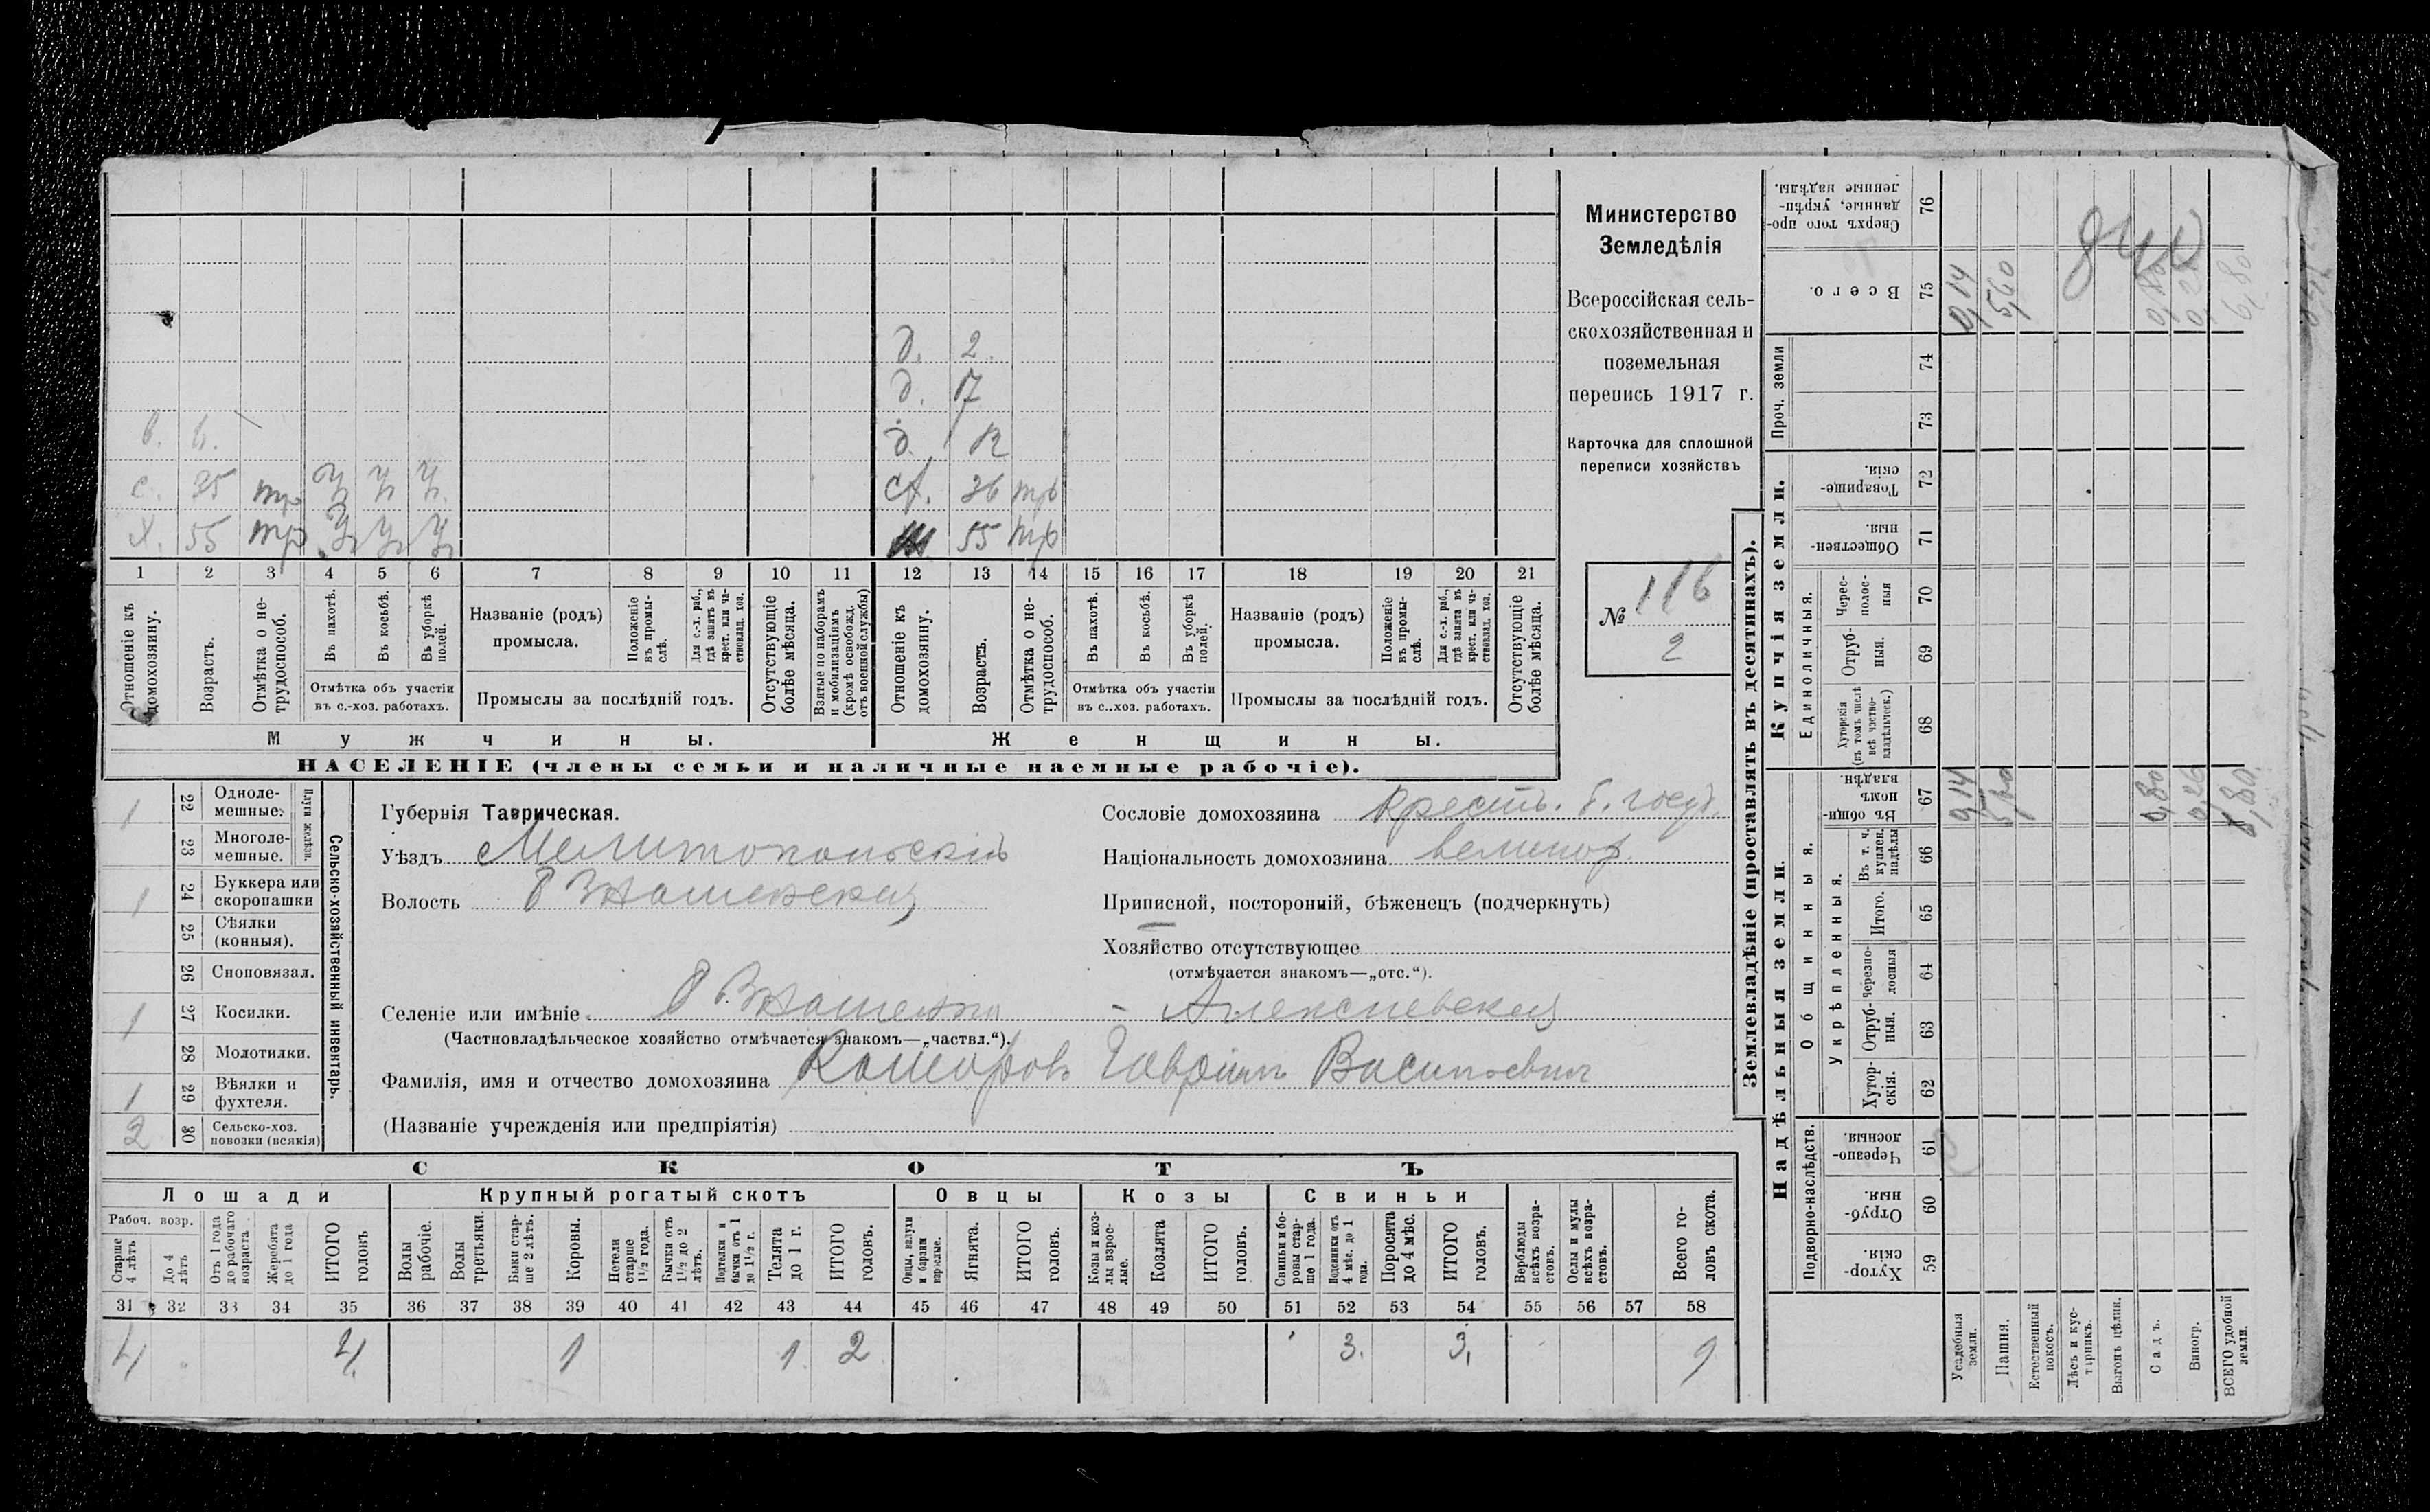 д. 2.
д. 17
в. 6. д. 12
с. 35 тр У У У. сн. 36 тр
х. 55 тр У У У 55 тр
1 2 3 4 5 6 7 8 9 10 11 12 13 14 15 16 17 18 19 20 21
Отношеніе къ домохозяину.
Возрастъ.
Отмѣтка о не-
трудоспособ.
Въ пахотѣ.
Въ косьбѣ.
Въ уборкѣ полей.
Отмѣтка объ участіи
въ с.-хоз. работахъ.
Названіе (родъ)
промысла.
Положеніе въ промы-
слѣ.
Для с.-х. раб., гдѣ занятъ въ крест. или ча-
ствовлад. хоз.
Промыслы за послѣдній годъ.
Отсутствующіе болѣе мѣсяца.
Взятые по наборамъ и мобилизаціямъ (кромѣ освобожд. отъ военной службы)
Отношеніе къ домохозяину.
Возрастъ.
Отмѣтка о не-
трудоспособ.
Въ пахотѣ.
Въ косьбѣ.
Въ уборкѣ полей.
Отмѣтка объ участіи
въ с..хоз. работахъ.
Названіе (родъ)
промысла.
Положеніе въ промы-
слѣ.
Для с.-х. раб., гдѣ занята въ крест. или ча-
ствовлад. хоз.
Промыслы за послѣдній годъ.
Отсутствующіе болѣе мѣсяца.
Мужчины. Женщины.
НАСЕЛЕНІЕ (члены семьи и наличные наемные рабочіе).
Министерство
Земледѣлія
Всероссійская сель-
скохозяйственная и
поземельная
перепись 1917 г.
Карточка для сплошной
переписи хозяйствъ
№ 116
2
Сельско-хозяйственный инвентарь.
Плуги желѣзн.
1 22 Одноле-
мешные.
23 Многоле-
мешные.
1 24 Буккера или
скоропашки
25 Сѣялки
(конныя).
26 Сноповязал.
1 27 Косилки.
28 Молотилки.
1 29 Вѣялки и
фухтеля.
2 30 Сельско-хоз.
повозки (всякія)
Губернія Таврическая.
Уѣздъ Мелитопольскій
Волость В Знаменская
Сословіе домохозяина крест. б. госуд.
Національность домохозяина великор.
Приписной, посторонній, бѣженецъ (подчеркнуть)
Хозяйство отсутствующее
(отмѣчается знакомъ—„отс.“).
Селеніе или имѣніе В. Знаменка - Алексеевская
(Частновладѣльческое хозяйство отмѣчается знакомъ—„частвл.“).
Фамилія, имя и отчество домохозяина Гавріилъ Васильевич
(Названіе учрежденія или предпріятія)
СКОТЪ
Лошади Крупный рогатый скотъ Овцы Козы Свиньи
Рабоч. возр.
Старше 4 лѣтъ
До 4 лѣтъ
Отъ 1 года до рабочаго возраста
Жеребята до 1 года
ИТОГО головъ
Волы рабочіе.
Волы третьяки.
Быки стар-
ше 2 лѣтъ.
Коровы.
Нетели старше 1½ года.
Бычки отъ 1½ до 2 лѣтъ.
Подтелки и бычки отъ 1 до 1½ г.
Телята до 1 г.
ИТОГО головъ.
Овцы, валухи и бараны взрослые.
Ягнята.
ИТОГО головъ.
Козы и коз-
лы взрос-
лые.
Козлята
ИТОГО головъ.
Свиньи и бо-
ровы стар-
ше 1 года.
Подсвинки отъ 4 мѣс. до 1 года.
Поросята до 4 мѣс.
ИТОГО головъ.
Верблюды всѣхъ возра-
стовъ.
Ослы и мулы всѣхъ возра-
стовъ.
Всего го-
ловъ скота.
31 32 33 34 35 36 37 38 39 40 41 42 43 44 45 46 47 48 49 50 51 52 53 54 55 56 57 58
4 4 1 1 2 3. 3 9
Землевладѣніе (проставлять въ десятинахъ).
Надѣльныя земли. Купчія земли.
Проч. земли
Подворно-наслѣдств.
Общинныя.
Укрѣпленныя.
Единоличныя.
Хутор-
скія. 59
Отруб-
ныя. 60
Черезпо-
лосныя. 61
Хутор-
скія. 62
Отруб-
ныя. 63
Черезпо-
лосныя 64
Итого. 65
Въ т. ч. куплен. надѣлы 66
Въ общин-
номъ владѣн. 67
Хуторскія (въ томъ числѣ всѣ частно-
владѣльческ.) 68
Отруб-
ныя. 69
Черес-
полос-
ныя 70
Обществен-
ныя. 71
Товарище-
скія. 72
73
74
Всего. 75
Сверхъ того про-
данные, укрѣп-
ленные надѣлы. 76
Усадебныя земли. 0,14 0,14
Пашня. 5,60 5,60
Естественный покосъ.
Лѣсъ и кус-
тарникъ.
Выгонъ цѣлин.
Садъ. 0,80 0,80
Виногр. 0,26 0,26
ВСЕГО удобной земли. 6,80 6,80